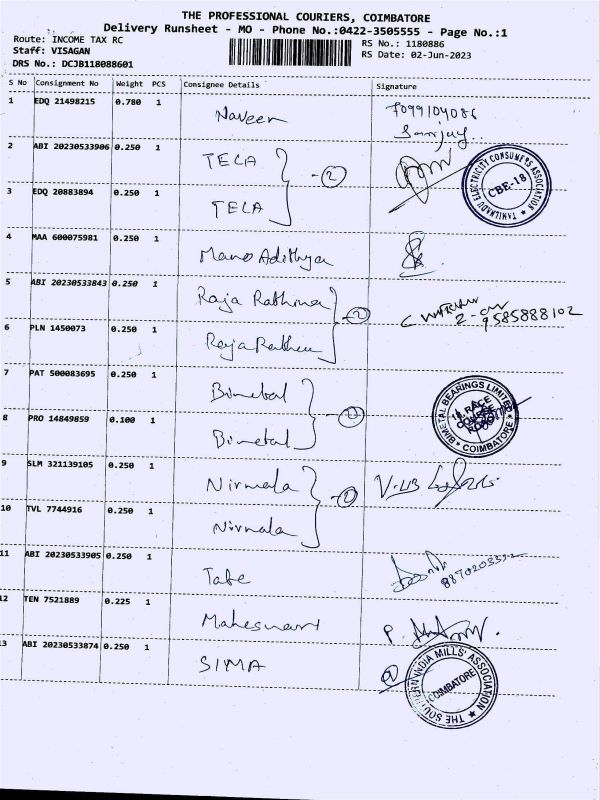 THE PROFESSIONAL COURIERS, COIMBATORE
Delivery Runsheet - MO - Phone No.:0422-3505555 - Page No.:1
Route: INCOME TAX RC RS No.: 1180886
Staff: VISAGAN RS Date: 02-Jun-2023
DRS No.: DCJB118088601
S No Consignment No Weight PCS Consignee Details Signature
1 EDQ 21498215 0.780 1 Naveen 7099104086
Sanjay..
2 ABI 20230533906 0.250 1 TECA
TAMILNADU ELECTRICITY CONSUMERS ASSOCIATION ★
CBE-18
3 EDQ 20883894 0.250 1 TECA
2
4 MAA 600075981 0.250 1 Mano Adithya
5 ABI 20230533843 0.250 1 Raja Rathna
2
9585888102
6 PLN 1450073 0.250 1
7 PAT 500083695 0.250 1 Bimetal
BIMETAL BEARINGS LIMITED
RACE
COURSE
ROAD
★ COIMBATORE ★
8 PRO 14849859 0.100 1 Bimetal
9 SLM 321139105 0.250 1 Nirmala
10 TVL 7744916 0.250 1 Nirmala
11 ABI 20230533905 0.250 1 Tate
12 TEN 7521889 0.225 1 Maheswari
13 ABI 20230533874 0.250 1 SIMA
THE SOUTHERN INDIA MILLS' ASSOCIATION ★
COIMBATORE